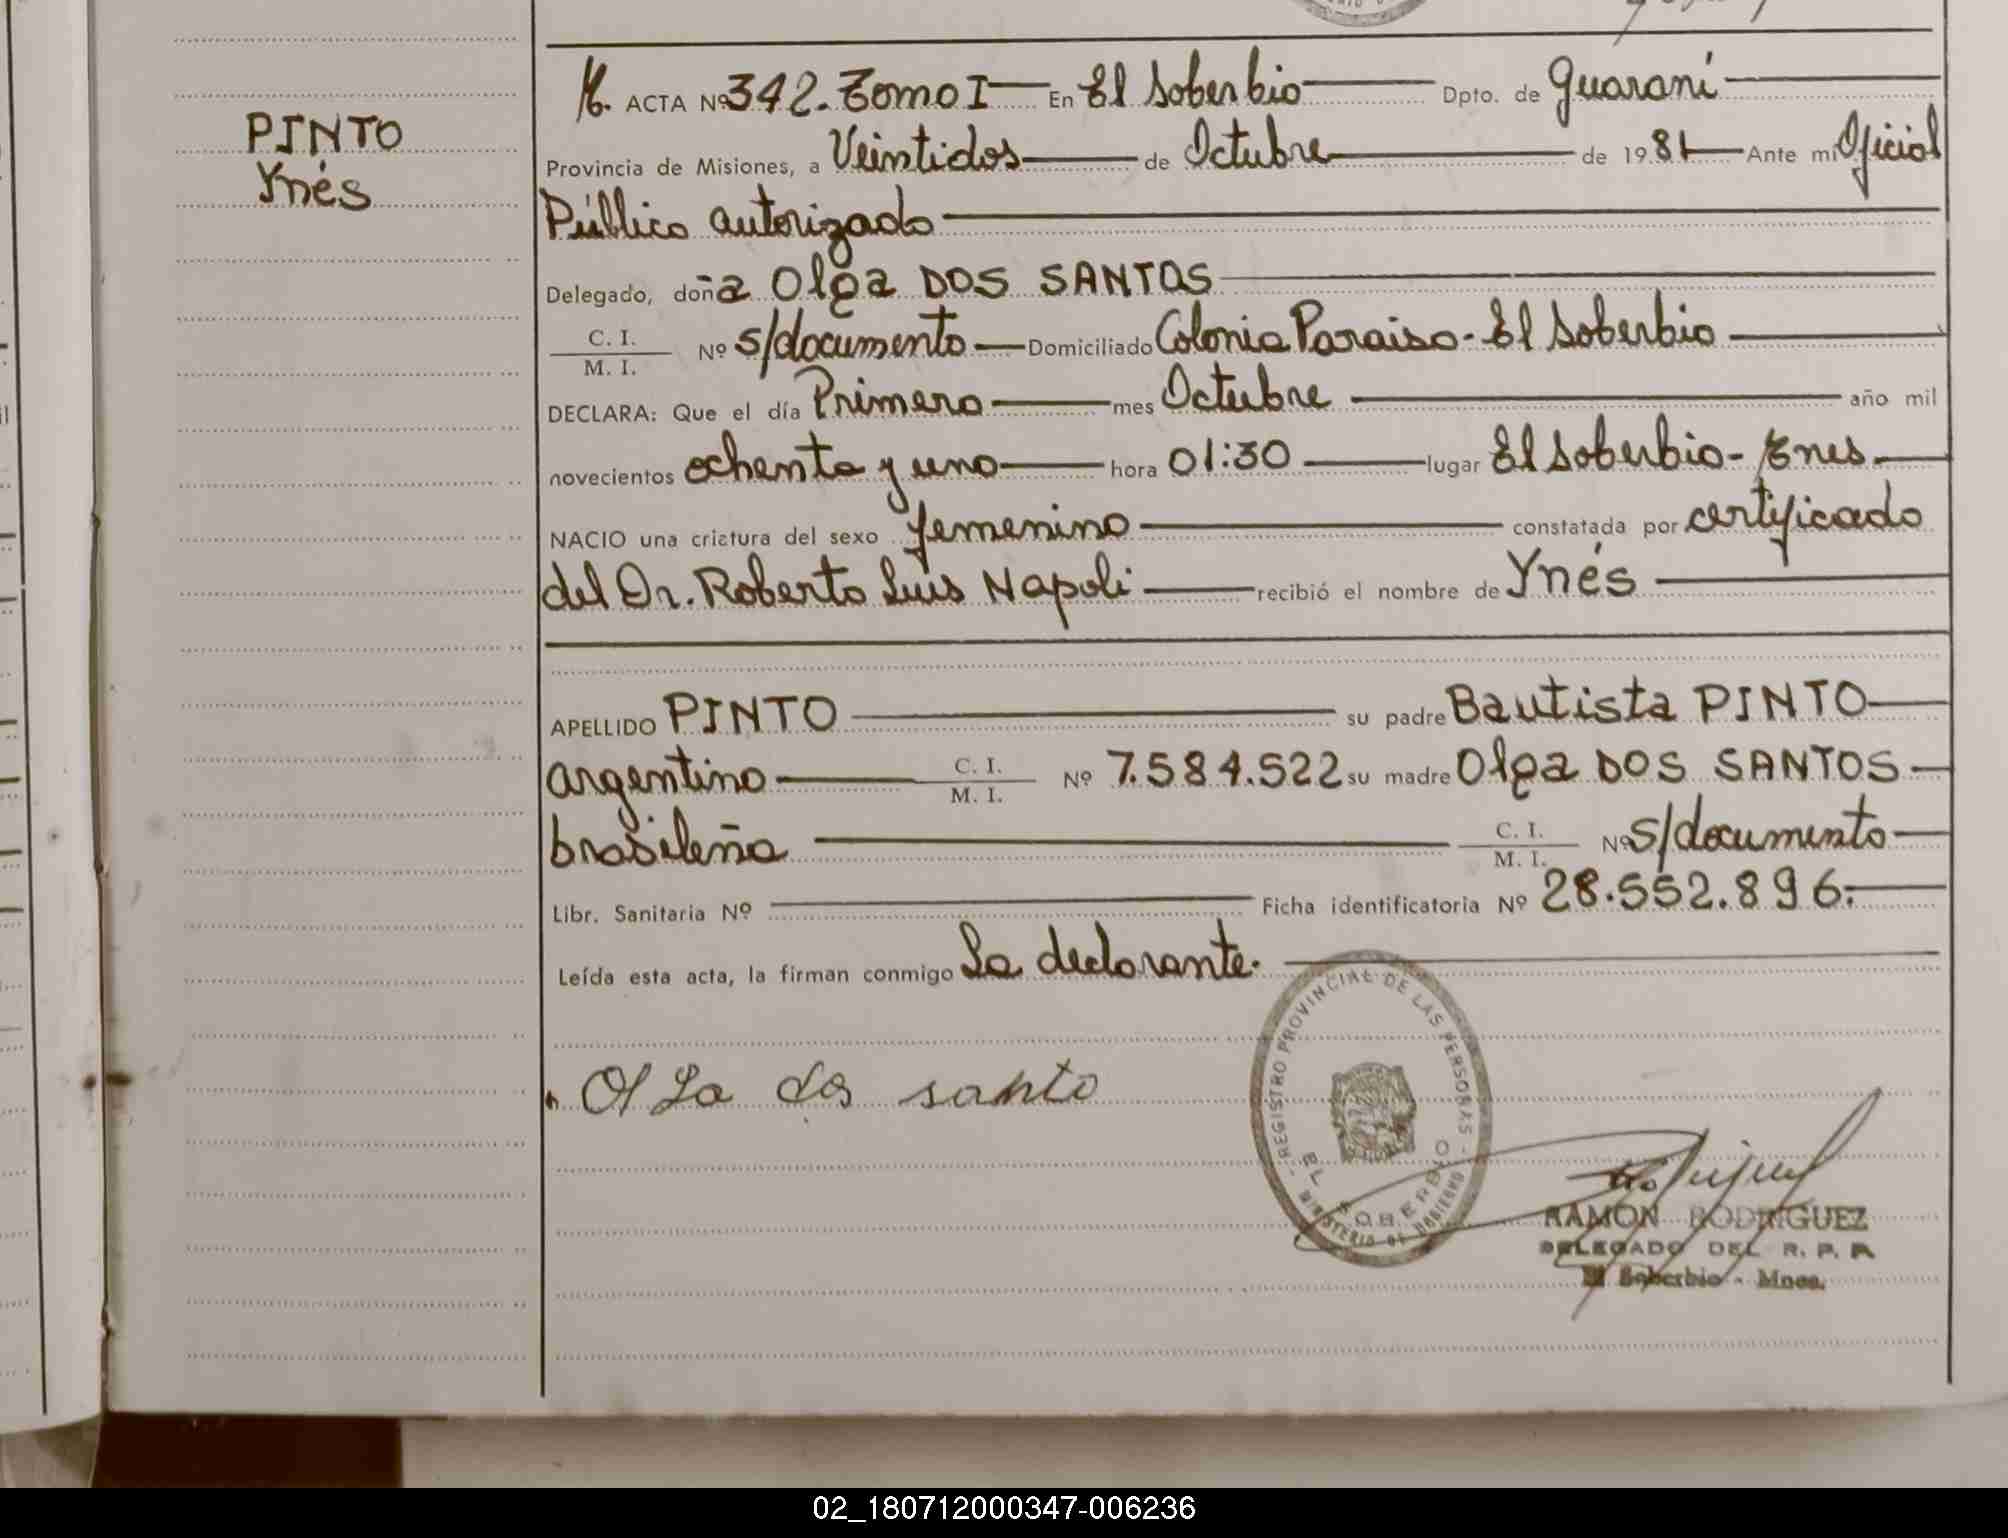 PINTO
Ynés
ACTA Nº 342. Tomo I En El Soberbio Dpto. de Guaraní
Provincia de Misiones, a Veintidos de Octubre de 1981 Ante mi Oficial
Público autorizado
Delegado, doña Olga DOS SANTOS
C. I.
M. I. Nº s/documento Domiciliado Colonia Paraiso - El Soberbio
DECLARA: Que el día Primero mes Octubre año mil
novecientos ochenta y uno hora 01:30 lugar El Soberbio -
NACIO una criatura del sexo femenino constatada por certificado
del Dr. Roberto Luis Napoli recibió el nombre de Ynés
APELLIDO PINTO su padre Bautista PINTO
argentino C. I. M. I. Nº 7.584.522 su madre Olga DOS SANTOS
brasileña C. I. M. I. Nº s/documento
Libr. Sanitaria Nº Ficha identificatoria Nº 28.552.896.
Leída esta acta, la firman conmigo La declarante.
REGISTRO PROVINCIAL DE LAS PERSONAS
EL SOBERBIO
MINISTERIO DE GOBIERNO
Ol La dos santo
RAMON RODRIGUEZ
DELEGADO DEL R. P. P.
El Soberbio - Mnes.
02_180712000347-006236